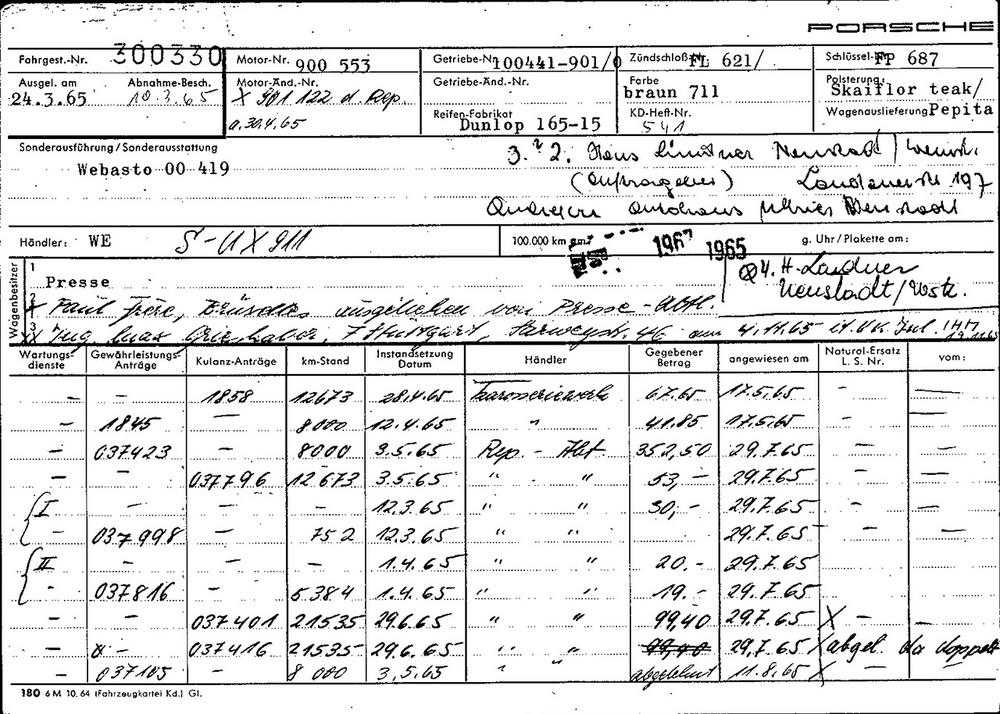 PORSCHE
Fahrgest.-Nr. 300330 Motor-Nr. 900 553 Getriebe-Nr. 100441-901/0 Zündschloß FL 621/ Schlüssel- FP 687
Ausgel. am Abnahme-Besch. Motor-Änd.-Nr. Getriebe-Änd.-Nr. Farbe Polsterung
24.3.65 10.3.65 X 901 122 d. Rep. braun 711 Skaiflor teak/
a. 30.4.65 Reifen-Fabrikat KD-Heft-Nr. Wagenauslieferung Pepita
Dunlop 165-15 541
Sonderausführung/Sonderausstattung
Webasto 00 419
3. 2. Hans Lindner Neustadt/Weinstr.
(Auftraggeber) Landauerstr 197
Autohaus Neustadt
Händler: WE S-UX911 100.000 km am: 1967 1965 g. Uhr/Plakette am:
Wagenbesitzer
1
Presse
4. H. Lindner
Neustadt/Wstr.
2 Paul Frère, Brüssel, ausgeliehen von Presse-Abtl.
3 Ing. Stuttgart, 46 am 4.11.65
Wartungsdienste Gewährleistungs-Anträge Kulanz-Anträge km-Stand Instandsetzung Datum Händler Gegebener Betrag angewiesen am Natural-Ersatz L. S. Nr. vom:
– – 1858 12673 28.4.65 Karosseriewerk 67.65 17.5.65 – –
– 1845 – 8000 12.4.65 " 41.85 17.5.65 – –
– 037423 – 8000 3.5.65 Rep. - Abt. 352,50 29.7.65 – –
– – 037796 12673 3.5.65 " " 53,- 29.7.65 – –
I – – – 12.3.65 " " 30,- 29.7.65 – –
– 037998 – 752 12.3.65 " " 29.7.65 – –
II – – – 1.4.65 " " 20.- 29.7.65
– 037816 – 5384 1.4.65 " " 19.- 29.7.65
037401 21535 29.6.65 " " 99,40 29.7.65 X – –
– 037416 21535 29.6.65 " " 99,40 29.7.65 X abgel. da doppelt
– 037105 – 8000 3.5.65 " " abgelehnt 11.8.65 X –
180 6 M 10. 64 (Fahrzeugkartei Kd.) Gl.